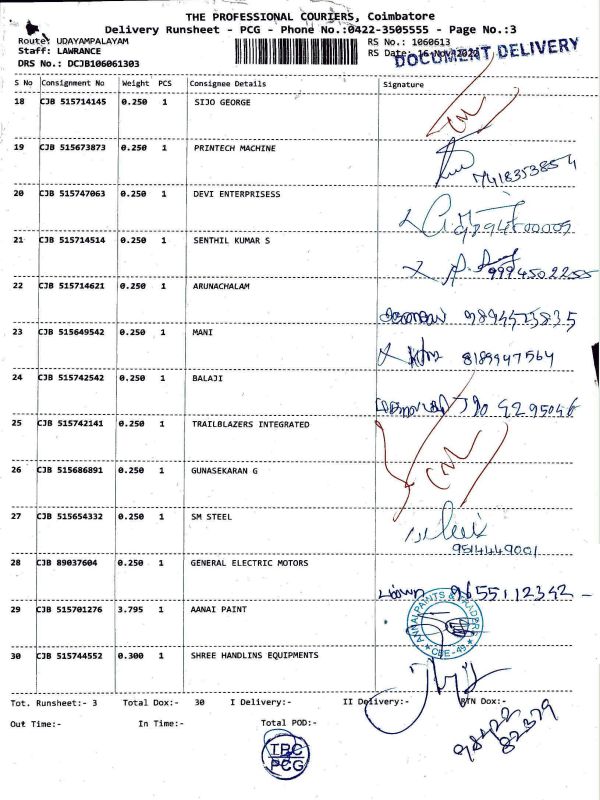 THE PROFESSIONAL COURIERS, Coimbatore
Delivery Runsheet - PCG - Phone No.:0422-3505555 - Page No.:3
Route: UDAYAMPALAYAM RS No.: 1060613
Staff: LAWRANCE RS Date: 16-Nov-2022
DOCUMENT DELIVERY
DRS No.: DCJB106061303
S No Consignment No Weight PCS Consignee Details Signature
18 CJB 515714145 0.250 1 SIJO GEORGE
19 CJB 515673873 0.250 1 PRINTECH MACHINE
7418353854
20 CJB 515747063 0.250 1 DEVI ENTERPRISESS
21 CJB 515714514 0.250 1 SENTHIL KUMAR S
9994502255
22 CJB 515714621 0.250 1 ARUNACHALAM
23 CJB 515649542 0.250 1 MANI
8189947564
24 CJB 515742542 0.250 1 BALAJI
25 CJB 515742141 0.250 1 TRAILBLAZERS INTEGRATED
26 CJB 515686891 0.250 1 GUNASEKARAN G
27 CJB 515654332 0.250 1 SM STEEL
9514449001
28 CJB 89037604 0.250 1 GENERAL ELECTRIC MOTORS
9655112342
29 CJB 515701276 3.795 1 AANAI PAINT
CBE-49
30 CJB 515744552 0.300 1 SHREE HANDLINS EQUIPMENTS
Tot. Runsheet:- 3 Total Dox:- 30 I Delivery:- II Delivery:- RTN Dox:-
Out Time:- In Time:- Total POD:-
98422
82379
TBC
PCG